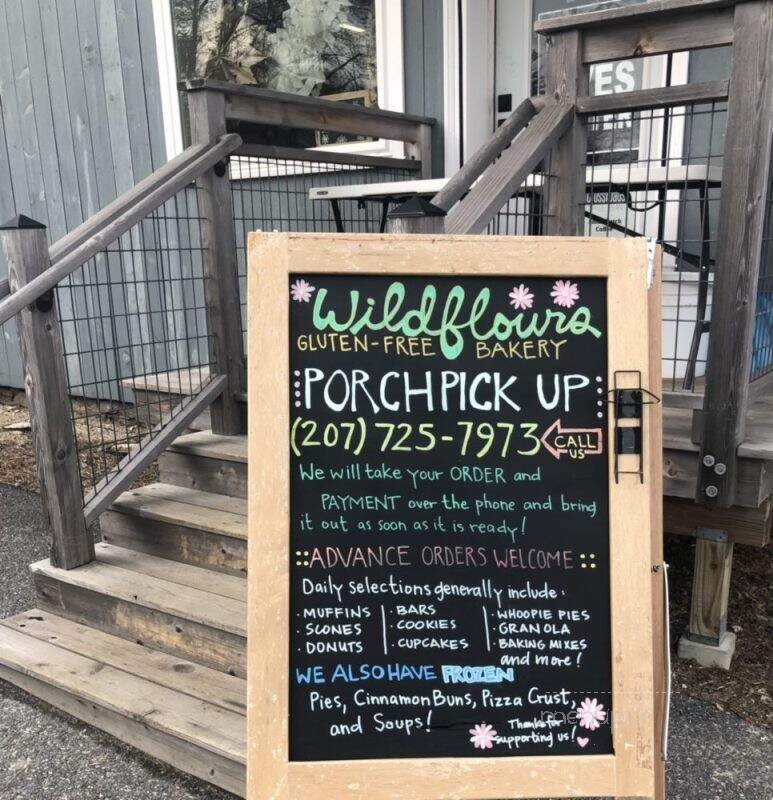 YES
Wildflours
GLUTEN-FREE BAKERY
PORCH PICK UP
(207) 725-7973 CALL US
We will take your ORDER and
PAYMENT over the phone and bring
it out as soon as it is ready!
ADVANCE ORDERS WELCOME
Daily selections generally include:
· MUFFINS · BARS · WHOOPIE PIES
· SCONES · COOKIES · GRANOLA
· DONUTS · CUPCAKES · BAKING MIXES
and more!
WE ALSO HAVE FROZEN
Pies, Cinnamon Buns, Pizza Crust,
and Soups!
Thanks for
supporting us!